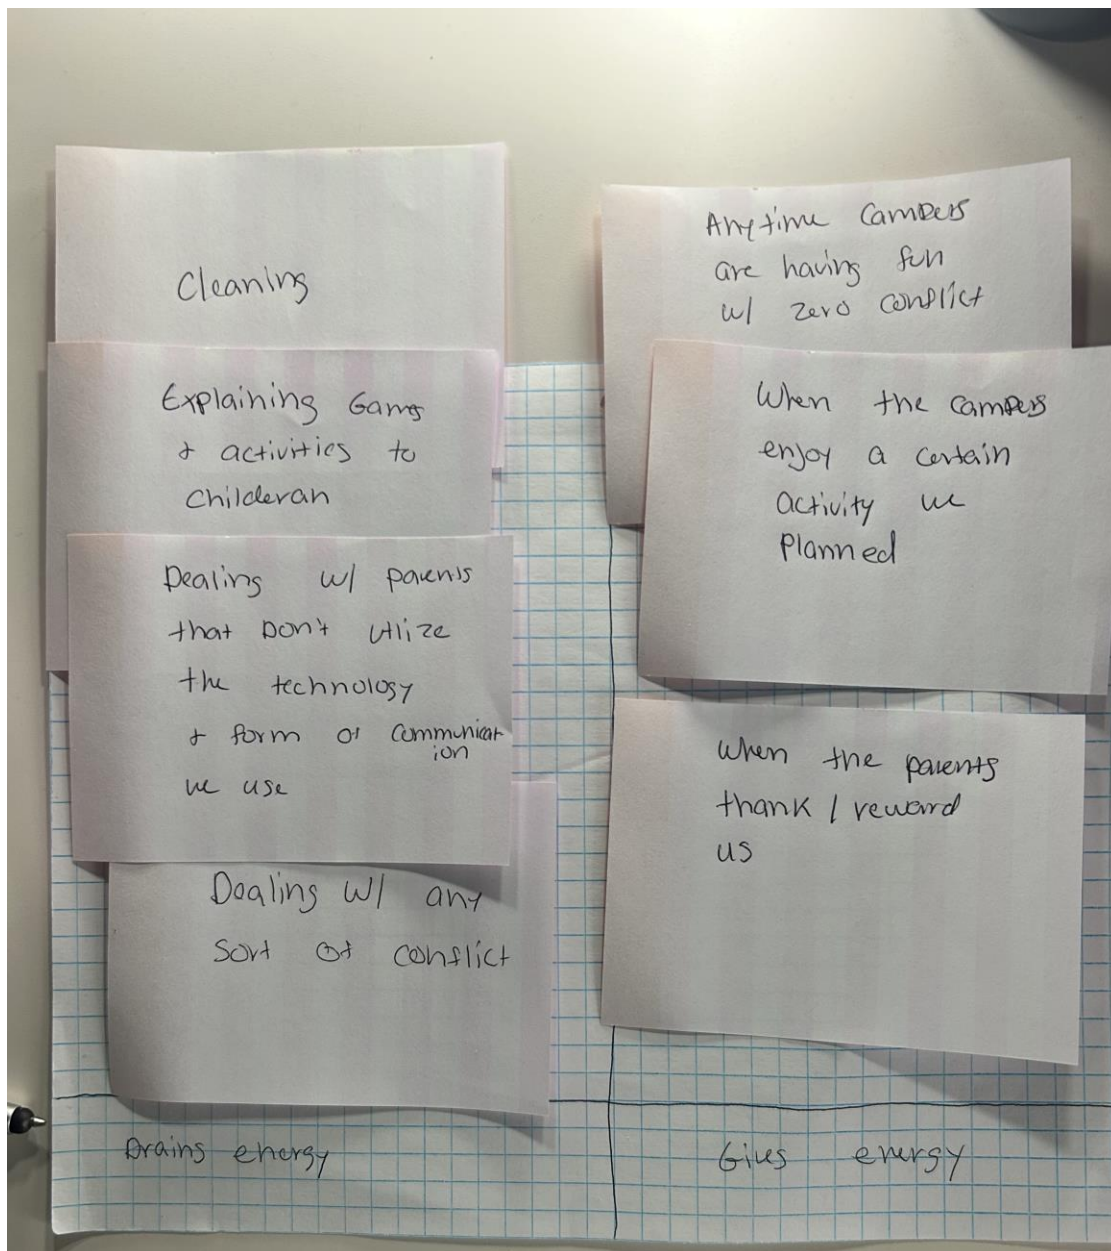 Cleaning
Explaining Games
& activities to
Childeran
Dealing w/ parents
that Don't utlize
the technology
& form of communicat
ion
we use
Dealing w/ any
sort of conflict
Drains energy
Anytime Campers
are having fun
w/ zero conflict
When the campers
enjoy a certain
activity we
planned
When the parents
thank / reward
us
Gives energy